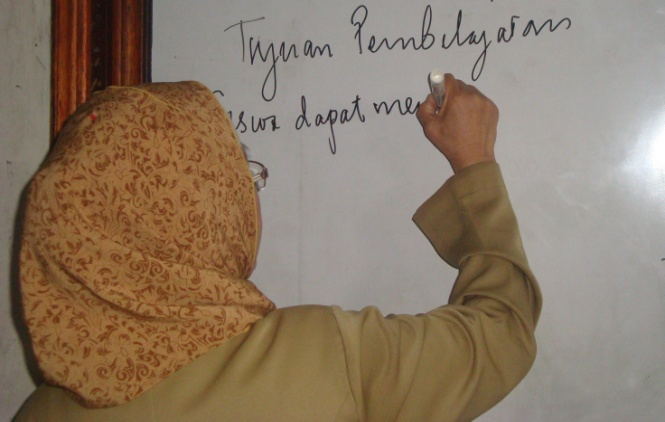 Tujuan Pembelajaran
Siswa dapat me